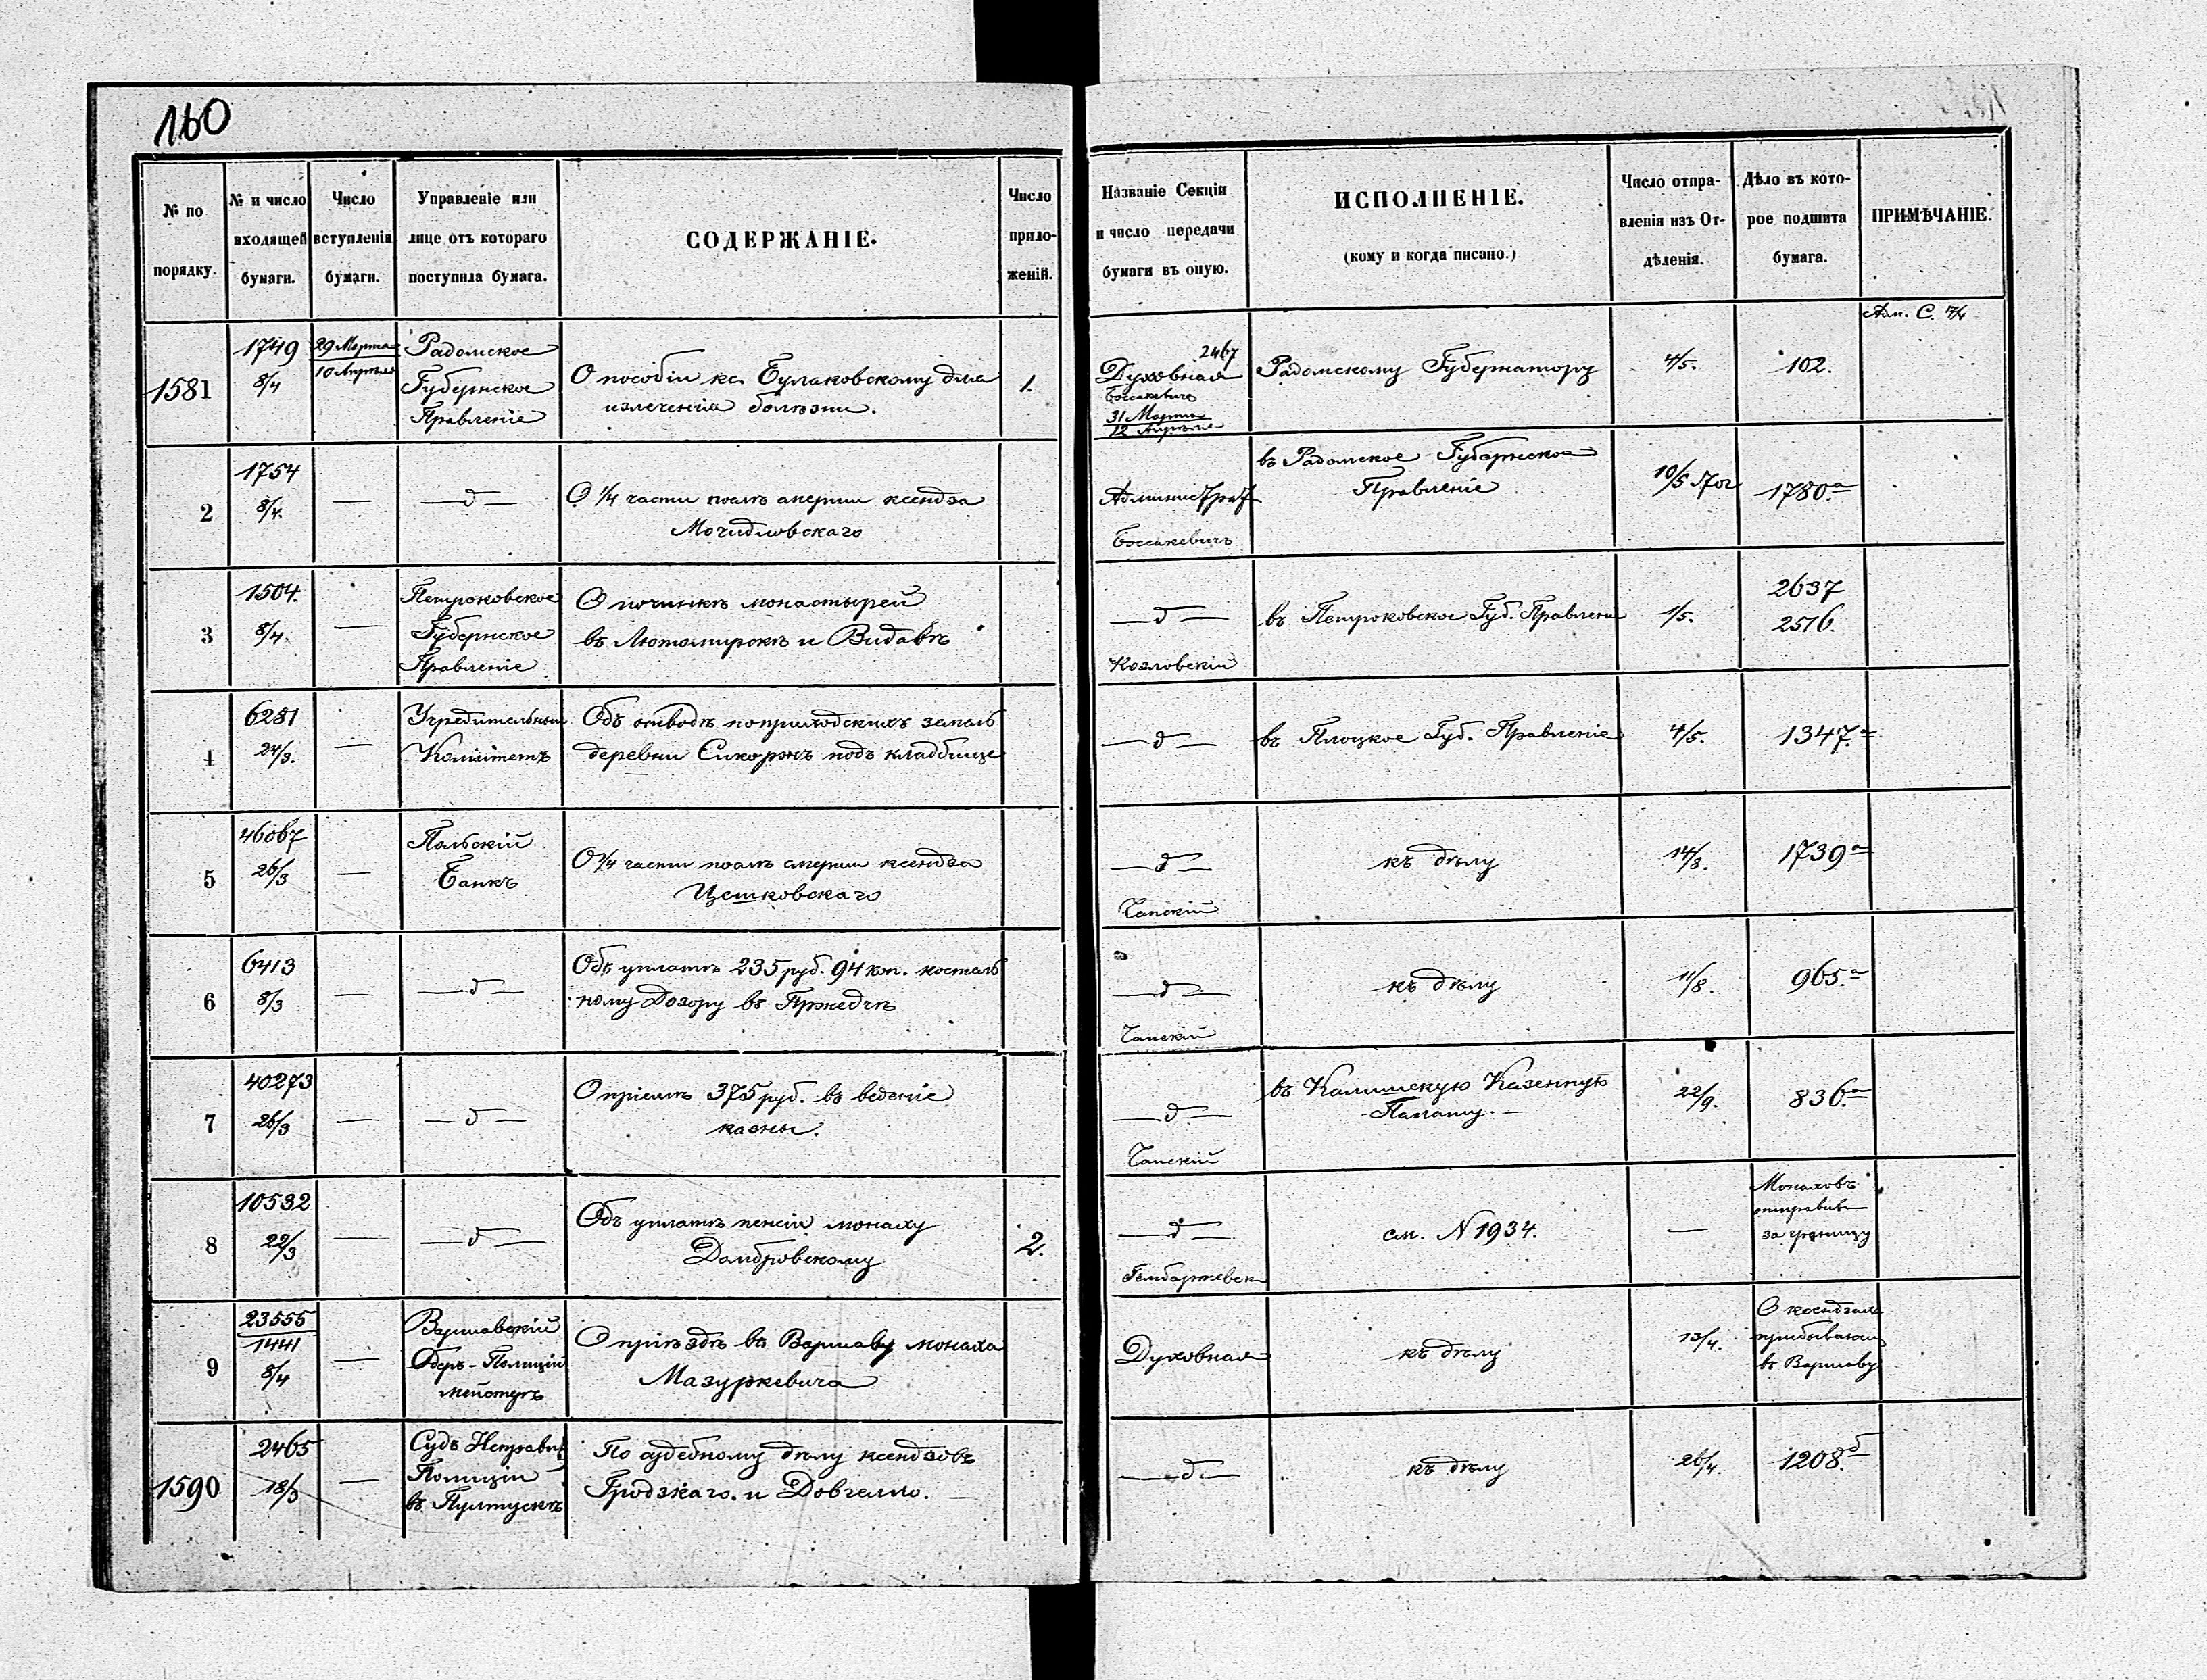 160
№ по порядку.
№ и число входящей бумаги.
Число вступленія бумаги.
Управленіе или лице отъ котораго поступила бумага.
СОДЕРЖАНІЕ.
Число приложеній.
Названіе Секціи и число передачи бумаги въ оную.
ИСПОЛНЕНІЕ.
(кому и когда писано.)
Число отправленія изъ Отдѣленія.
Дѣло въ которое подшита бумага.
ПРИМѢЧАНІЕ.
1581
1749
8/4
29 Марта
10 Апрѣля
Радомское
Губернское
Правленіе
О пособіи кс. Булаковскому для
излеченія болѣзни.
1.
2467
Духовная
Боссакевичъ
31 Марта
12 Апрѣля
Радомскому Губернатору
4/5.
102.
Адм. С. 7/4
2
1754
8/4.
—
— д —
О 1/4 части пожъ аперии ксендза
Мочидловскаго
Администрат
Боссакевичъ
въ Радомское Губернское
Правленіе
10/5
1780.а
3
1504.
8/4.
—
Петроковское
Губернское
Правленіе
О починкѣ монастырей
въ Лютомирскѣ и Видавѣ
— д —
Козловскій
въ Петроковское Губ. Правленіе
1/5.
2637
2516.
4
6281
24/3.
—
Учредительный
Комитетъ
Объ отводѣ поприходскихъ земель
деревни Сикоржъ подъ кладбище
— д —
въ Плоцкое Губ. Правленіе
4/5.
1347.а
5
46067
26/3
—
Польскій
Банкъ
О 1/4 части пожъ аперии ксендза
Цешковскаго
— д —
Чапскій
къ дѣлу
14/8.
1739а
6
6413
8/3
—
— д —
Объ уплатѣ 235 руб. 94 коп. костель
ному Дозору въ Пржедчѣ
— д —
Чапскій
къ дѣлу
11/8.
965.а
7
40273
26/3
—
— д —
О пріемѣ 375 руб. въ веденіе
казны.
— д —
Чапскій
въ Калишскую Казенную
Палату. —
22/9.
836.а
8
10532
22/3
—
— д —
Объ уплатѣ пенсіи монаху
Домбровскому
2.
— д —
Гембаржевск
см. N 1934.
—
Монаховъ
отправив
за границу
9
23555
1441
8/4
—
Варшавскій
Оберъ-Полицій
мейстеръ
О пріѣздѣ въ Варшаву монаха
Мазуркевича
Духовная
къ дѣлу
13/4.
О ксендзахъ
прибывающ
въ Варшаву
1590
2465
18/3
—
Судъ Исправит
Полиціи
въ Пултускѣ
По судебному дѣлу ксендзовъ
Гродзкаго. и Довгелло. —
— д —
къ дѣлу
26/4.
1208.б